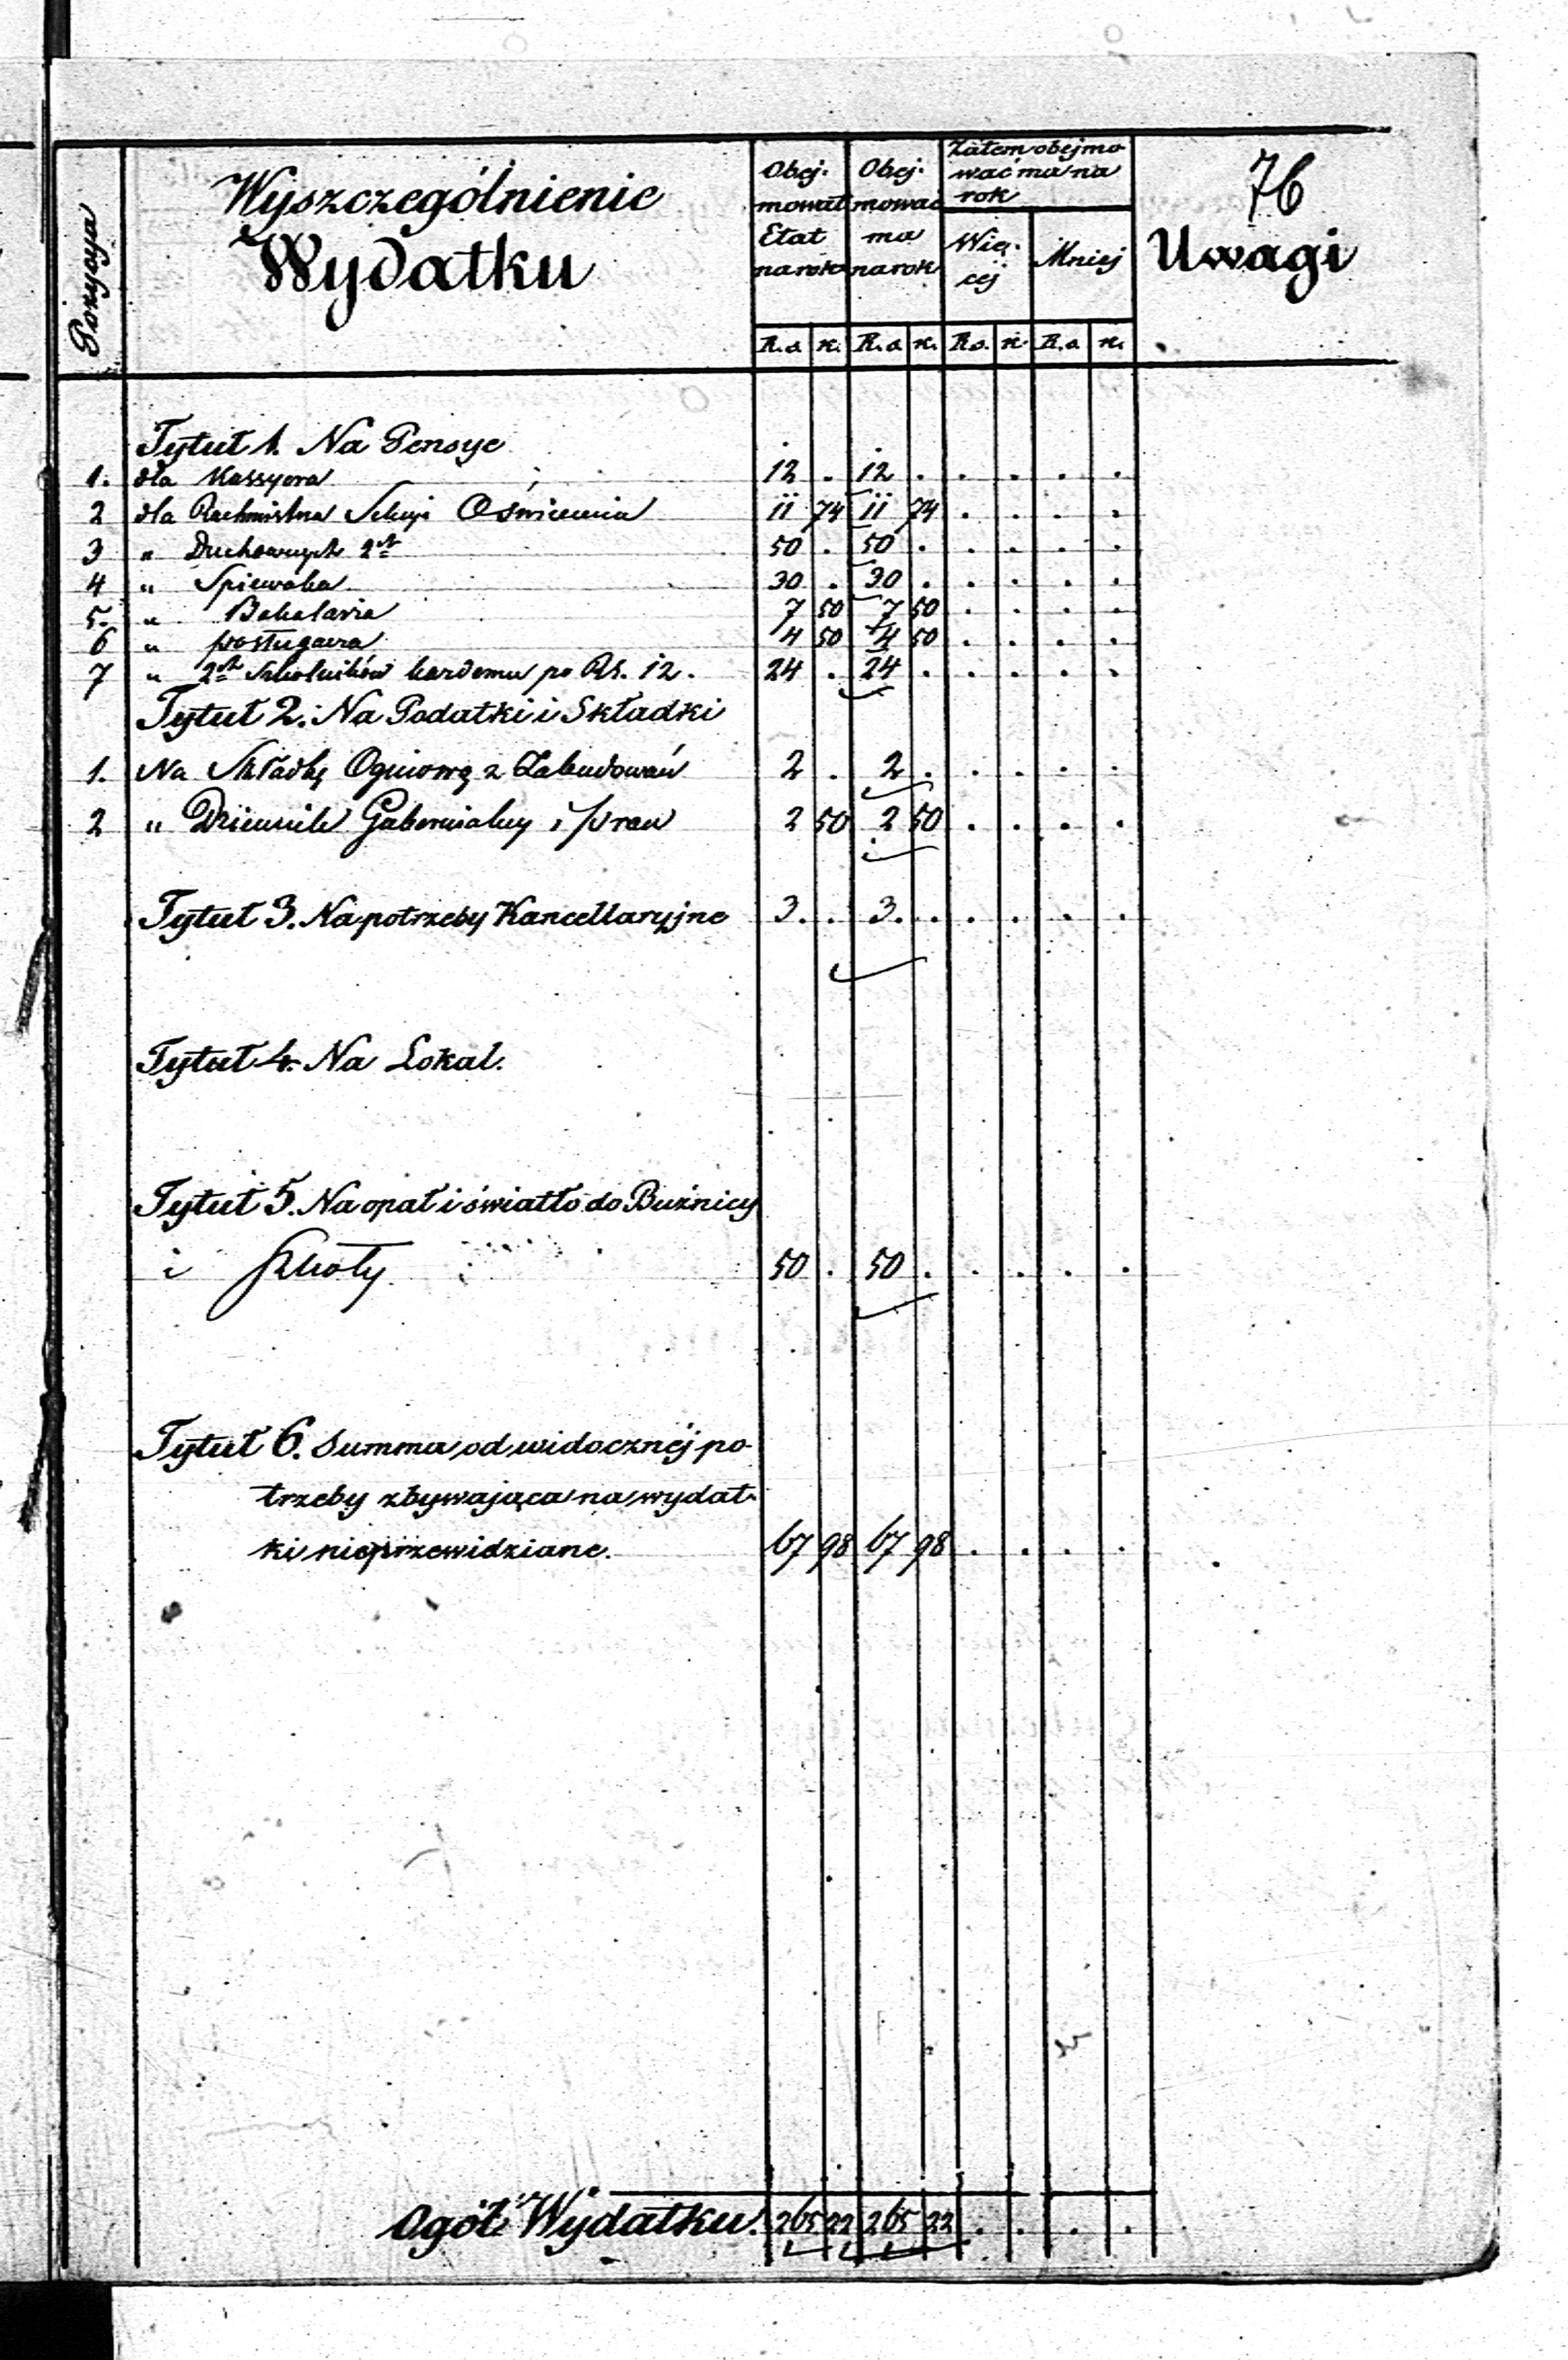 76
Pozycya
Wyszczególnienie
Wydatku
Obej-
mował
Etat
na rok
Obej-
mować
ma
na rok
Zatem obejmo
wać ma na
rok
Wię-
cej
Mniej
Uwagi
R.s. k. R.s. k. R.s. k. R.s. k.
Tytuł 1. Na Pensye
1. dla Kassyera 12 . 12 . . . . .
2 dla Rachmistrza Sekcyi Oświecenia 11 74 11 74 . . . .
3 „ Duchownych 2ch 50 . 50 . . . . .
4 „ Spiewaka 30 . 30 . . . . .
5. „ Bakalarza 7 50 7 50 . . . .
6 „ posługacza 4 50 4 50 . . . .
7 „ 2ch Szkolników każdemu po Rs. 12. 24 . 24 . . . . .
Tytuł 2. Na Podatki i Składki
1. Na Składkę Ogniową z Zabudowań 2 . 2 . . . . .
2 „ Dziennik Gubernialny i praw 2 50 2 50 . . . .
Tytuł 3. Na potrzeby Kancellaryjne 3. . 3. . . . . .
Tytuł 4. Na Lokal.
Tytuł 5. Na opał i światło do Bużnicy
i Szkoły 50 . 50 . . . . .
Tytuł 6. Summa od widocznéj po-
trzeby zbywająca na wydat-
ki nieprzewidziane. 67 98 67 98 . . . .
Ogół Wydatku. 265 22 265 22 . . . .